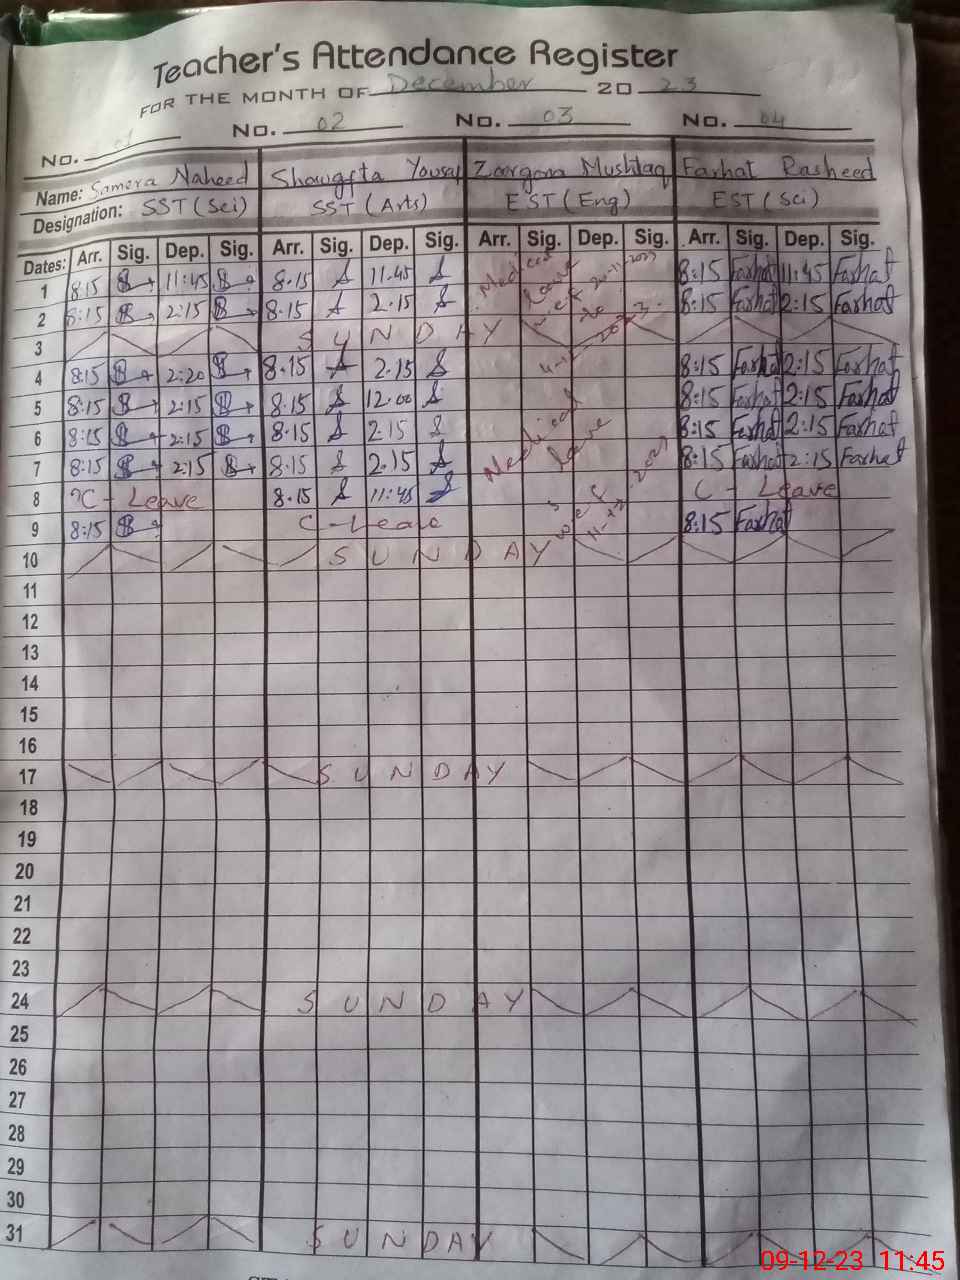 Teacher's Attendance Register
FOR THE MONTH OF December 20 23
No. 01 No. 02 No. 03 No. 04
Name: Samera Naheed Shawgfta Yousaf Zoorgona Mushtaq Farhat Rasheed
Designation: SST (Sci) SST (Arts) EST (Eng) EST (Sci)
Dates: Arr. Sig. Dep. Sig. Arr. Sig. Dep. Sig. Arr. Sig. Dep. Sig. Arr. Sig. Dep. Sig.
1 8:15 11:45 8.15 11.45 Medical leave w.e.f 20-11-2023 to 8:15 Farhat 11:45 Farhat
2 8:15 2:15 8.15 2.15 8:15 Farhat 2:15 Farhat
3 SUNDAY
4 8:15 2:20 8.15 2.15 8:15 Farhat 2:15 Farhat
5 8:15 2:15 8.15 12.00 8:15 Farhat 2:15 Farhat
6 8:15 2:15 8.15 2.15 Medical leave 8:15 Farhat 2:15 Farhat
7 8:15 2:15 8.15 2.15 8:15 Farhat 2:15 Farhat
8 C - Leave 8.15 11:45 w.e.f C - Leave
9 8:15 C - Leave 8:15 Farhat
10 SUNDAY
11
12
13
14
15
16
17 SUNDAY
18
19
20
21
22
23
24 SUNDAY
25
26
27
28
29
30
31 SUNDAY
09-12-23 11:45